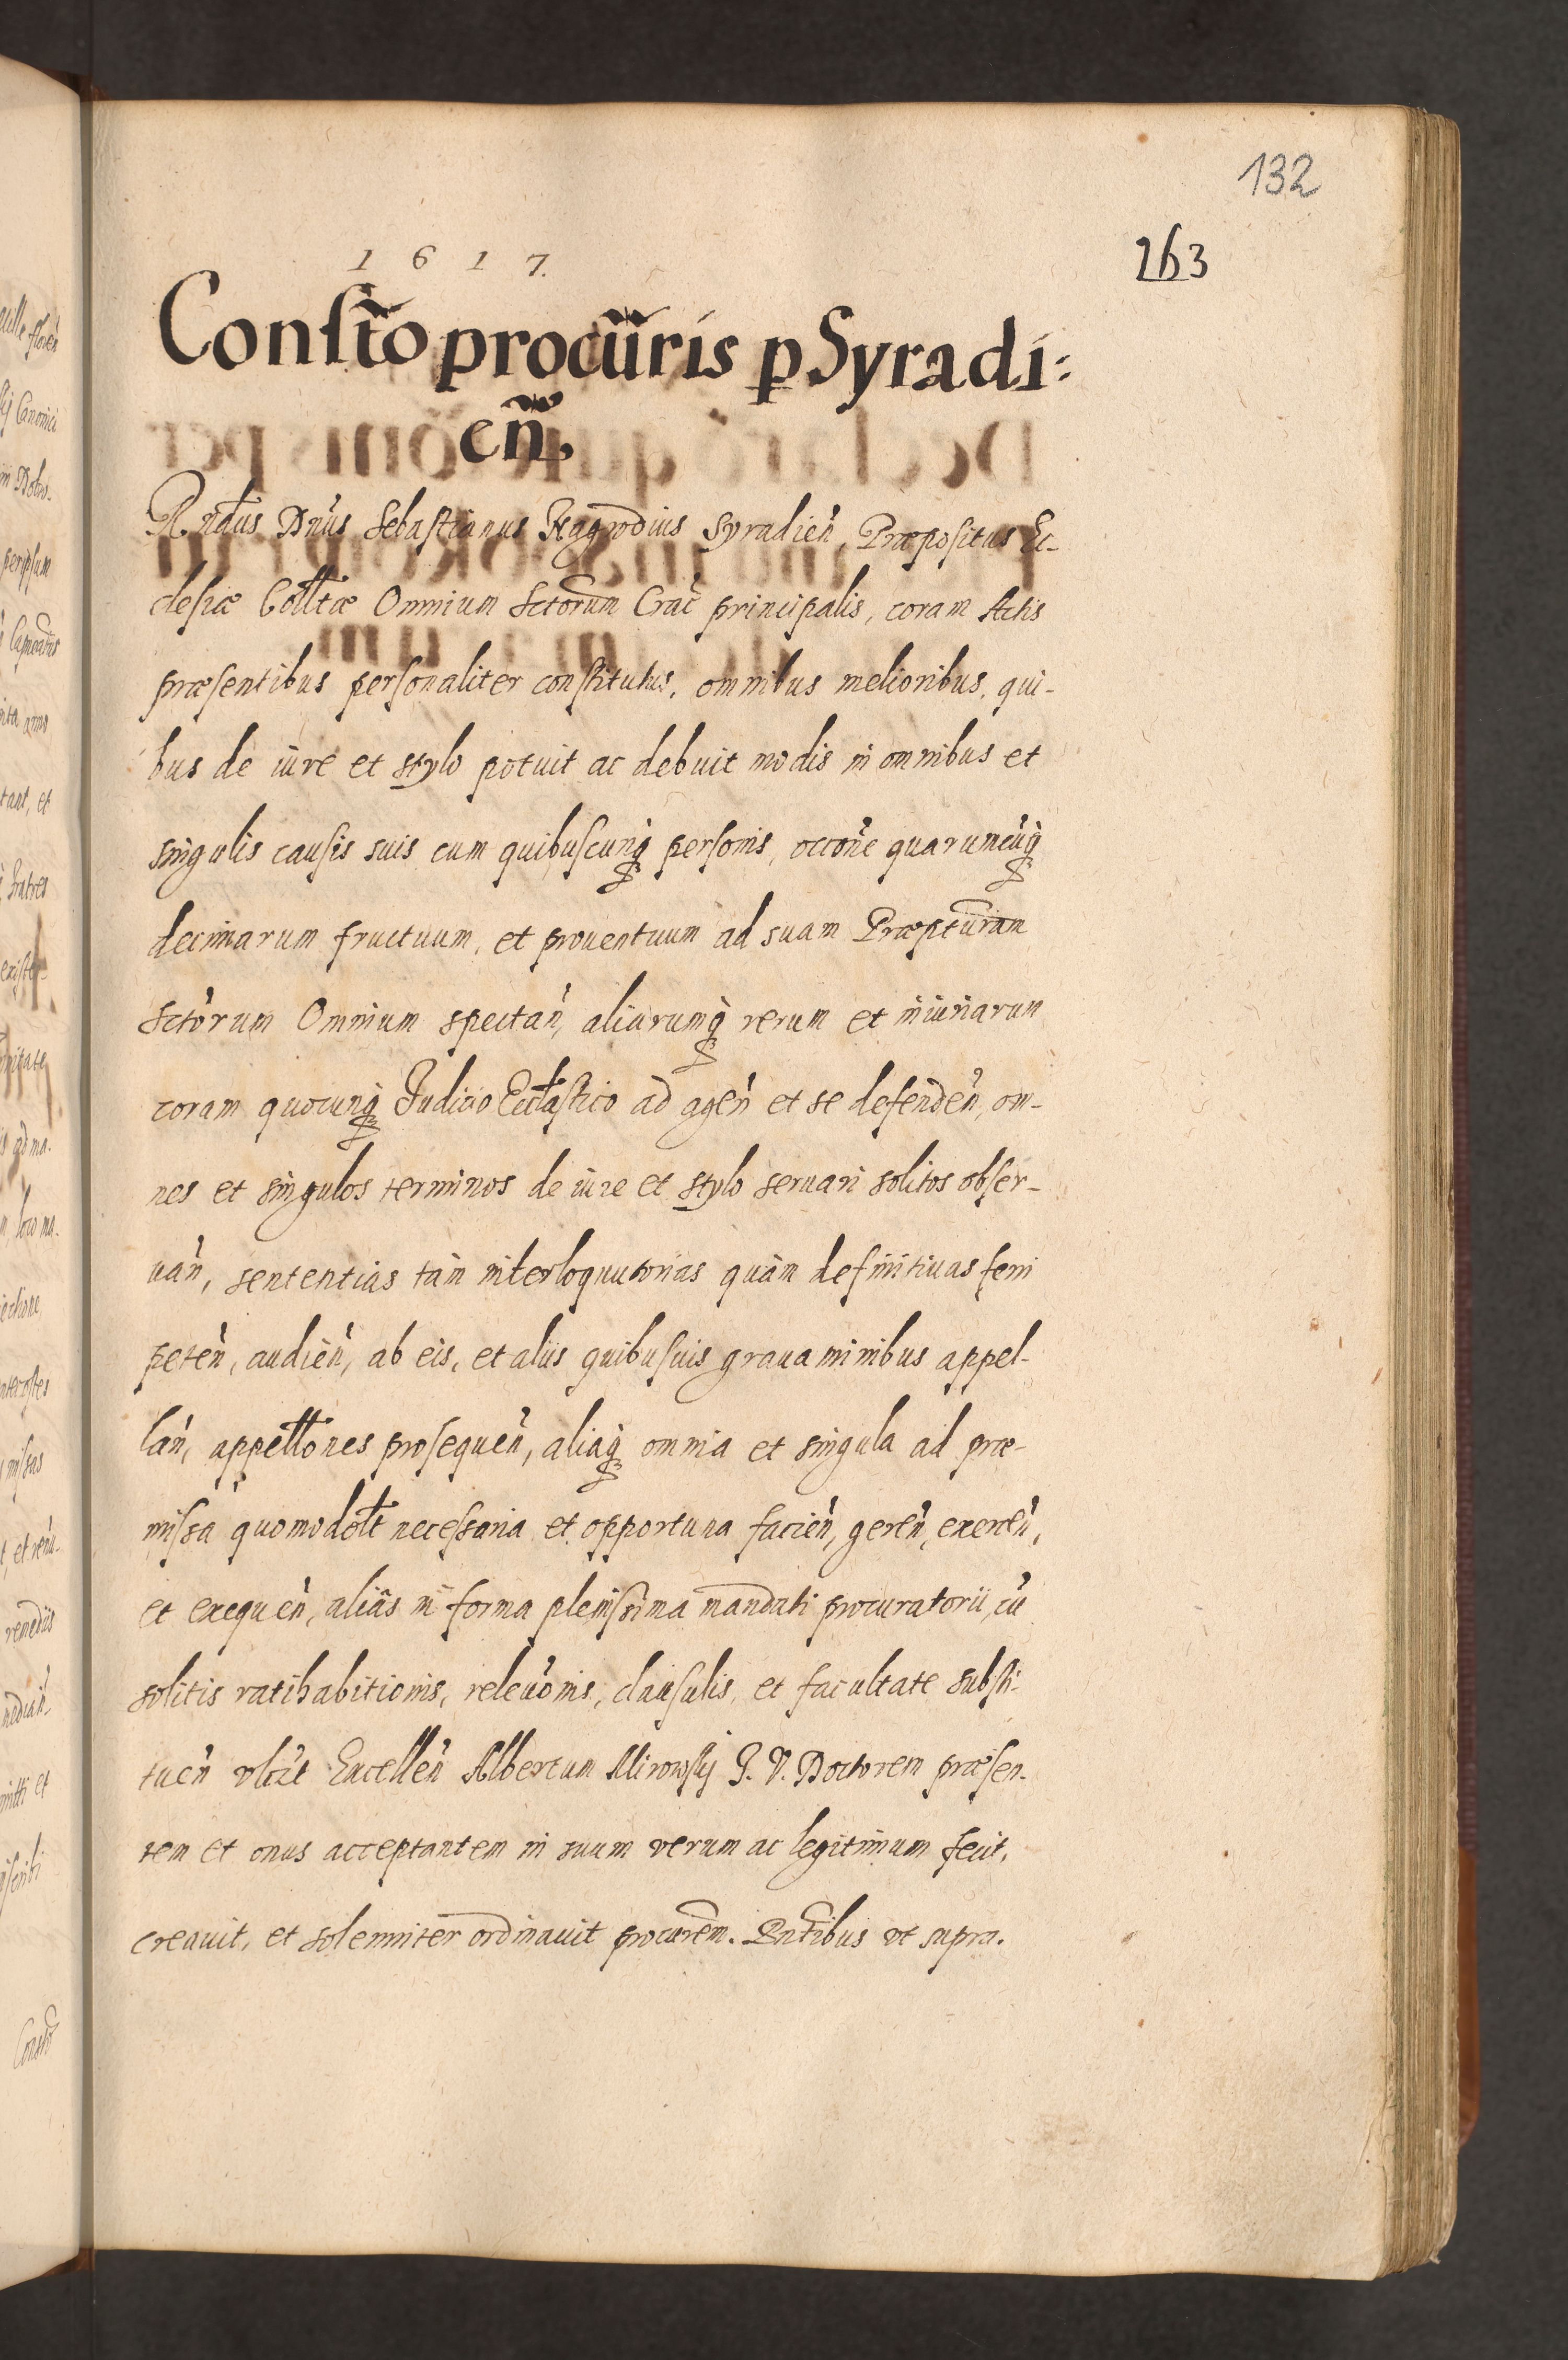 132
1 6 1 7.
263
Constto procuris p Syradi:
cen.
Rndus Dnus Sebastianus Nagrodius Syradien, Præpositus Ec-
clesiæ Colltæ Omnium Sctorum Crac principalis, coram Actis
præsentibus personaliter constitutus, omnibus melioribus, qui-
bus de iure et stylo potuit ac debuit modis in omnibus et
singulis causis suis cum quibuscunq personis, occone quarumcuq
decimarum fructuum, et prouentuum ad suam Præpturam
Sctorum Omnium spectan, aliarumq rerum et iniuriarum
coram quocunq Iudicio Eccltastico ad agen et se defenden, om-
nes et singulos terminos de iure et stylo seruari solitos obser-
uan, sententias tam interloquutorias quàm definitiuas ferri
peten, audien, ab eis, et aliis quibusuis grauaminibus appel-
lan, appelltones prosequen, aliaq omnia et singula ad præ-
missa quomodolt necessaria et opportuna facien, geren, exercen,
et exequen, aliâs in forma plenissima mandati procuratorii, cu
solitis ratihabitionis, releuonis, clausulis, et facultate substi-
tuen vltt Excellen Albertum Mirowskj I. V. Doctorem præsen-
tem et onus acceptantem in suum verum ac legitimum fecit,
creauit, et solenniter ordinauit procurem. Pntibus vt supra.